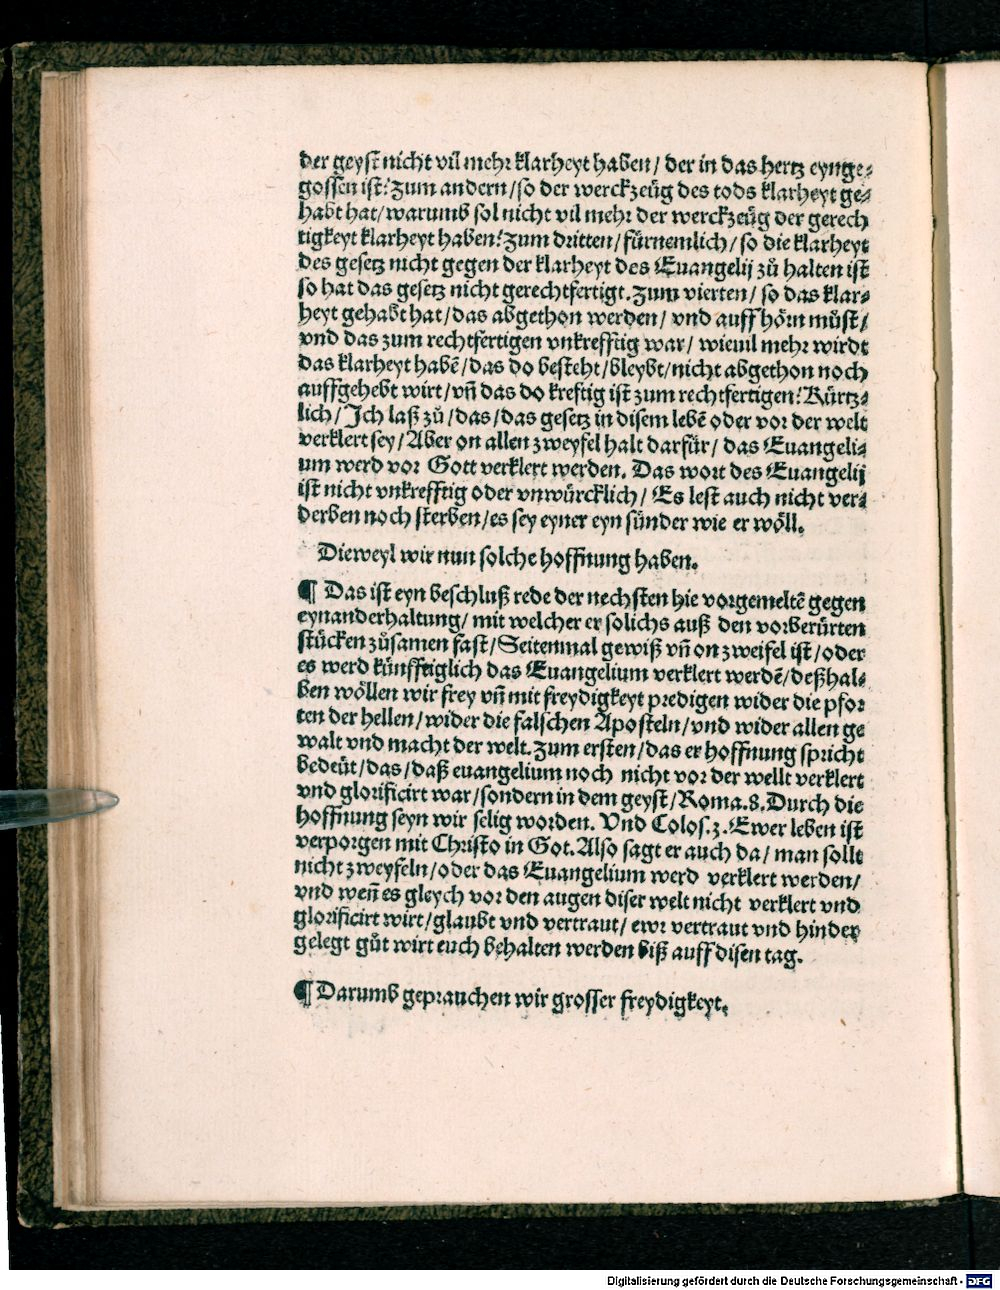 der geyſt nicht vil mehr klarheyt haben/ der in das hertz eynge⸗
goſſen iſt? Zum andern/ ſo der werckzeüg des tods klarheyt ge⸗
habt hat/ warumb ſol nicht vil mehr der werckzeüg der gerech
tigkeyt klarheyt haben? Zum dritten/ fürnemlich/ ſo die klarheyt
des geſetz nicht gegen der klarheyt des Euangelij zů halten iſt
ſo hat das geſetz nicht gerechtfertigt. Zum vierten/ ſo das klar⸗
heyt gehabt hat/ das abgethon werden/ vnd auff hörn můſt/
vnd das zum rechtfertigen vnkrefftig war/ wieuil mehr wirdt
das klarheyt habē/ das do beſteht/ bleybt/ nicht abgethon noch
auffgehebt wirt/ vn̄ das do kreftig iſt zum rechtfertigen? Kürtz⸗
lich/ Ich laß zů/ das/ das geſetz in diſem lebē oder vor der welt
verklert ſey/ Aber on allen zweyfel halt darfür/ das Euangeli⸗
um werd vor Gott verklert werden. Das wort des Euangelij
iſt nicht vnkrefftig oder vnwürcklich/ Es leſt auch nicht ver⸗
derben noch ſterben/ es ſey eyner eyn ſünder wie er wöll.
Dieweyl wir nun ſolche hoffnung haben.
¶ Das iſt eyn beſchluß rede der nechſten hie vorgemeltē gegen
eynanderhaltung/ mit welcher er ſolichs auß den vorberürten
ſtücken zůſamen faſt/ Seitenmal gewiß vn̄ on zweifel iſt/ oder
es werd künfftiglich das Euangelium verklert werdē/ deßhal⸗
ben wöllen wir frey vn̄ mit freydigkeyt predigen wider die pfor
ten der hellen/ wider die falſchen Apoſteln/ vnd wider allen ge
walt vnd macht der welt. Zum erſten/ das er hoffnung ſpricht
bedeüt/ das/ daß euangelium noch nicht vor der wellt verklert
vnd glorificirt war/ ſondern in dem geyſt/ Roma. 8. Durch die
hoffnung ſeyn wir ſelig worden. Vnd Coloſ. 3. Ewer leben iſt
verporgen mit Chriſto in Got. Alſo ſagt er auch da/ man ſollt
nicht zweyfeln/ oder das Euangelium werd verklert werden/
vnd wen̄ es gleych vor den augen diſer welt nicht verklert vnd
glorificirt wirt/ glaubt vnd vertraut/ ewr vertraut vnd hinder
gelegt gůt wirt euch behalten werden biß auff diſen tag.
¶ Darumb geprauchen wir groſſer freydigkeyt.
Digitalisierung gefördert durch die Deutsche Forschungsgemeinschaft - DFG